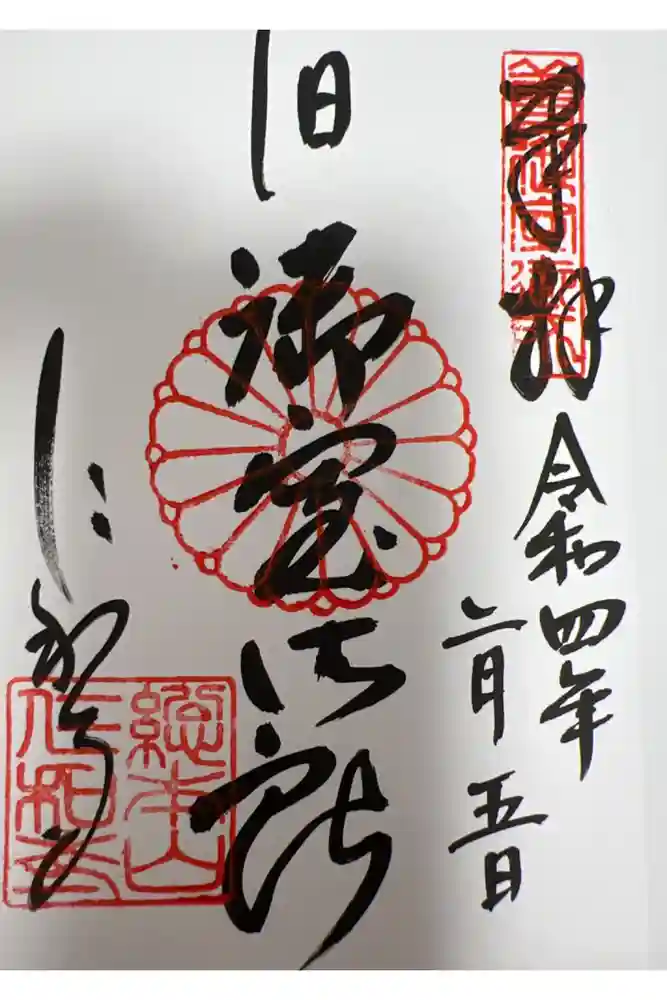 奉拝
令和四年
二月五日
旧御室御所
仁和寺
総本山
仁和寺